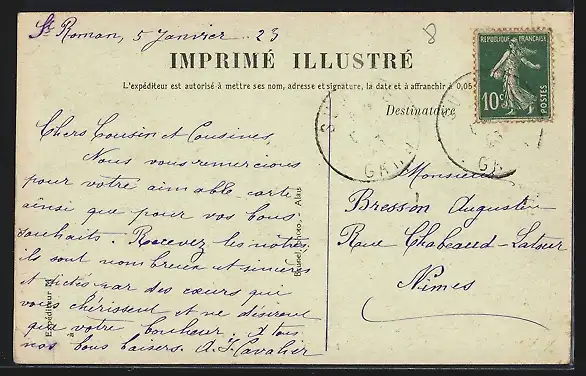 St Roman, 5 Janvier 23
8
IMPRIMÉ ILLUSTRÉ
L'expéditeur est autorisé à mettre ses nom, adresse et signature, la date et à affranchir à 0,05
REPUBLIQUE FRANÇAISE
10c
POSTES
Destinataire
GARD
Chers Cousin et Cousines,
Nous vous remercions
pour votre aimable carte
ainsi que pour vos bons
souhaits. Recevez les nôtres
ils sont nombreux et sincères
et dictés par des cœurs qui
vous chérissent et ne désirent
que votre bonheur. A tous
nos bons baisers. A. J. Cavalier
Monsieur
Bresson Augustin
Rue Chabeaud-Latour
Nimes
Expéditeur M
à
Bausel, photo, - Alais